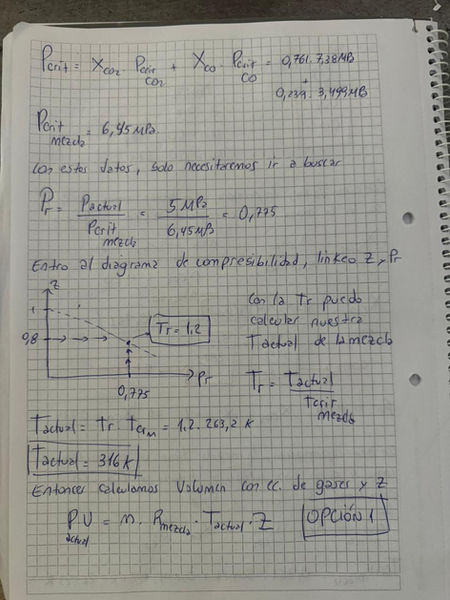 Pcrit = Xco2 . Pcrit co2 + Xco . Pcrit co = 0,761. 7,38MPa
+
0,239. 3,499MPa
Pcrit mezcla = 6,45 MPa.
Con estos datos, solo necesitaremos ir a buscar
Pr = Pactual / Pcrit mezcla = 5 MPa / 6,45MPa = 0,775
Entro al diagrama de compresibilidad, linkeo Z y Pr
Z
1
0,8
Tr = 1,2
0,775
Pr
Con la Tr puedo
calcular nuestra
Tactual de la mezcla
Tr = Tactual / Tcrit mezcla
Tactual = Tr . TcrM = 1,2 . 263,2 K
Tactual = 316 K
Entonces calculamos Volumen con ec. de gases y Z
Pactual V = n . Rmezcla . Tactual . Z
OPCIÓN 1